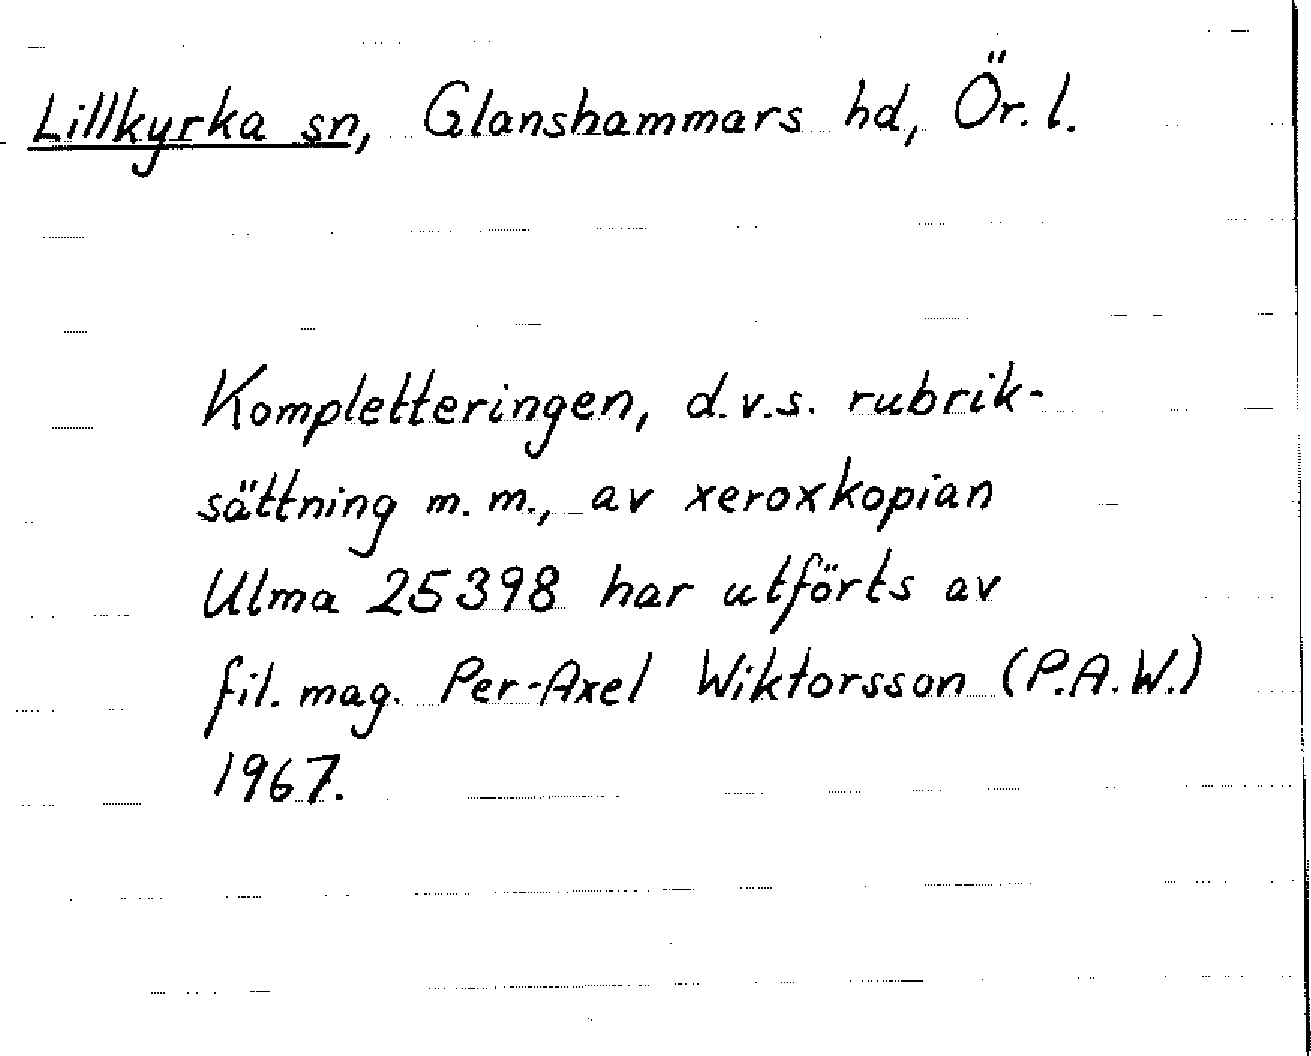 Lillkyrka sn, Glanshammars hd, Ör. l.
Kompletteringen, d.v.s. rubrik-
sättning m. m., av xeroxkopian
Ulma 25398 har utförts av
fil. mag. Per-Axel Wiktorsson (P.A.W.)
1967.